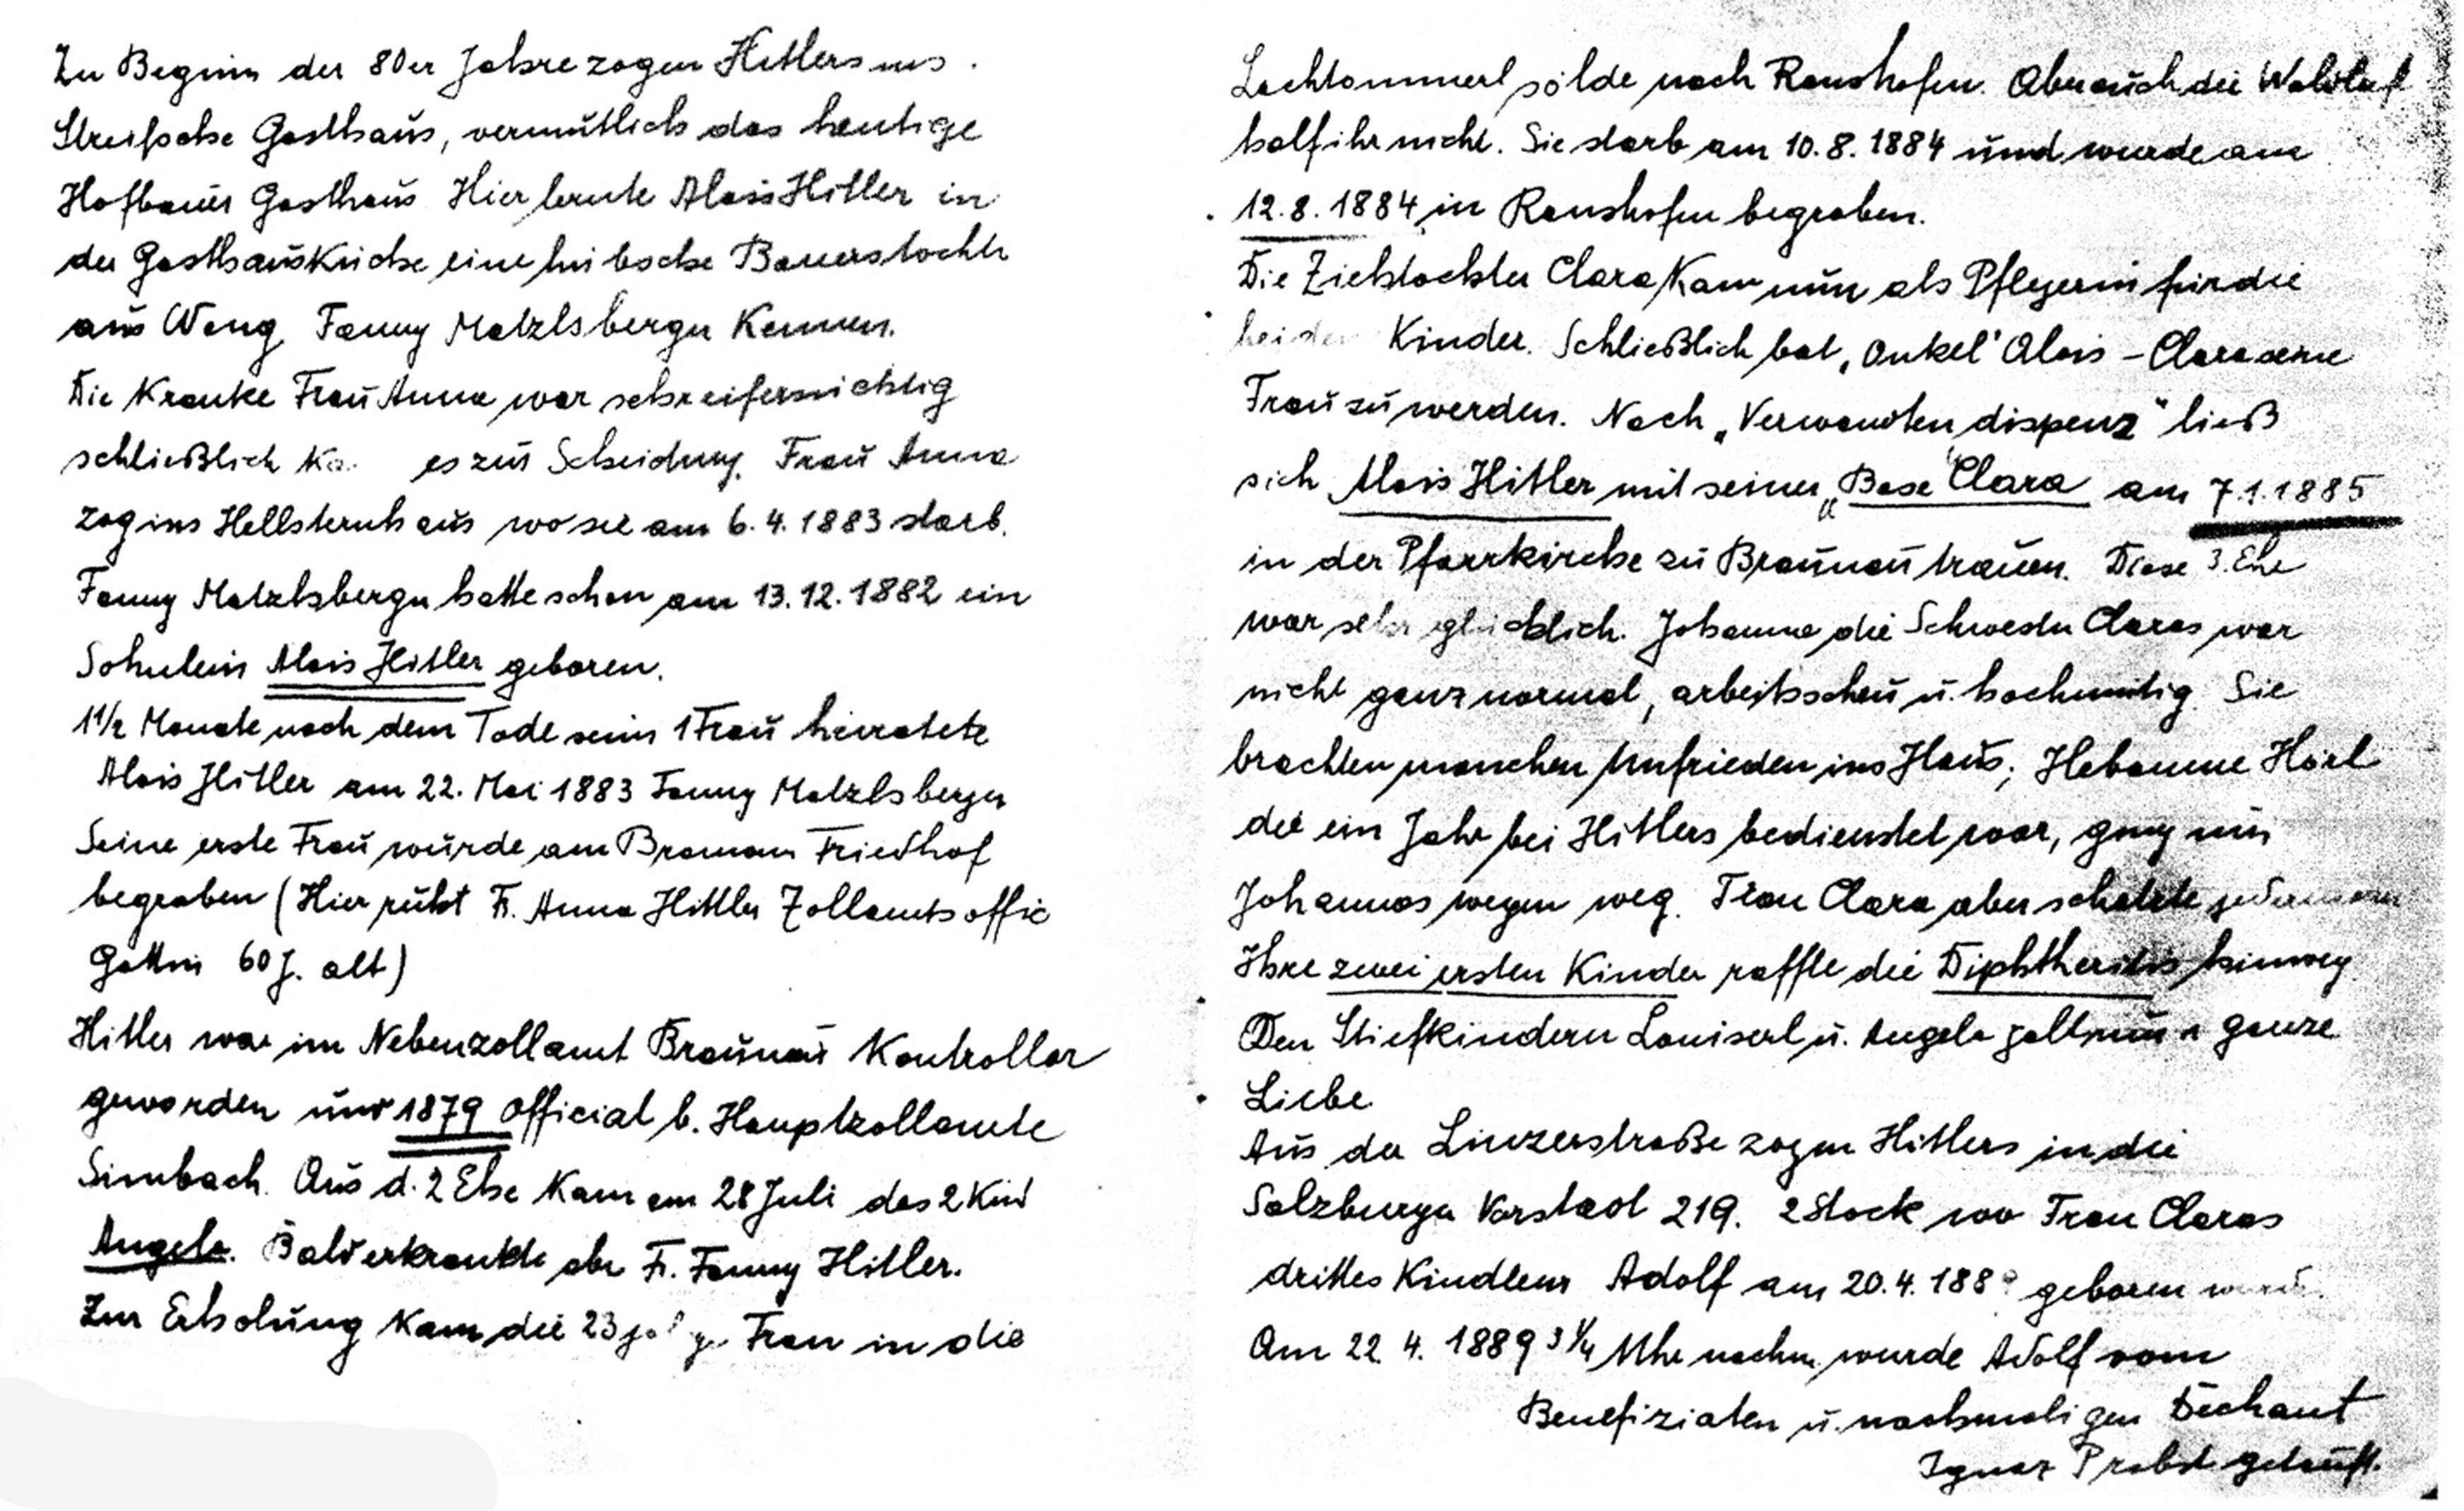 Zu Beginn der 80er Jahre zogen Hitlers ins
Streifsche Gasthaus, vermutlich das heutige
Hofbauer Gasthaus Hier lernte Alois Hitler in
der Gasthausküche eine hübsche Bauerstochter
aus Weng Fanny Matzlsberger kennen.
Die kranke Frau Anna war sehr eifersüchtig
schließlich es zur Scheidung. Frau Anna
zog ins Hellsternhaus wo sie am 6.4.1883 starb.
Fanny Matzlsberger hatte schon am 13.12.1882 ein
Söhnlein Alois Hitler geboren.
1 1/2 Monate nach dem Tode seiner 1 Frau heiratete
Alois Hitler am 22. Mai 1883 Fanny Matzlsberger
Seine erste Frau wurde am Braunau Friedhof
begraben (Hier ruht Fr. Anna Hittler Zollamtsoffic
Gattin 60 J. alt)
Hitler war im Nebenzollamt Braunau Kontrollor
geworden und 1879 Official b. Hauptzollamte
Simbach. Aus d. 2 Ehe kam am 28 Juli das 2 Kind
Angela. Bald erkrankte aber Fr. Fanny Hitler.
Zur Erholung kam die 23 Frau in die
Lachtommerlsölde nach Ranshofen. Aber auch die Waldluft
half ihr nicht. Sie starb am 10.8.1884 und wurde am
12.8.1884 in Ranshofen begraben.
Die Ziehtochter Clara kam nun als Pflegerin für die
beiden Kinder. Schließlich bat "Onkel" Alois – Clara seine
Frau zu werden. Nach "Verwandtendispenz" ließ
sich Alois Hitler mit seiner "Base" Clara am 7.1.1885
in der Pfarrkirche zu Braunau trauen. Diese 3. Ehe
war sehr glücklich. Johanna die Schwester Claras war
nicht ganz normal, arbeitsscheu u. hochmütig. Sie
brachten manchen Unfrieden ins Haus; Hebamme Hörl
die ein Jahr bei Hitlers bedienstet war, ging nun
Johannas wegen weg. Frau Clara aber schätzte jedermann
Ihre zwei ersten Kinder raffte die Diphtheritis hinweg
Den Stiefkindern Louiserl u. Angela galt nun ganze
Liebe
Aus der Linzerstraße zogen Hitlers in die
Salzburger Vorstadt 219. 2 Stock wo Frau Claras
drittes Kindlein Adolf am 20.4.1889 geboren wurde.
Am 22. 4. 1889 3 1/4 Uhr nachm. wurde Adolf vom
Benefiziaten u. nachmaligen Dechant
Ignaz Probst getauft.